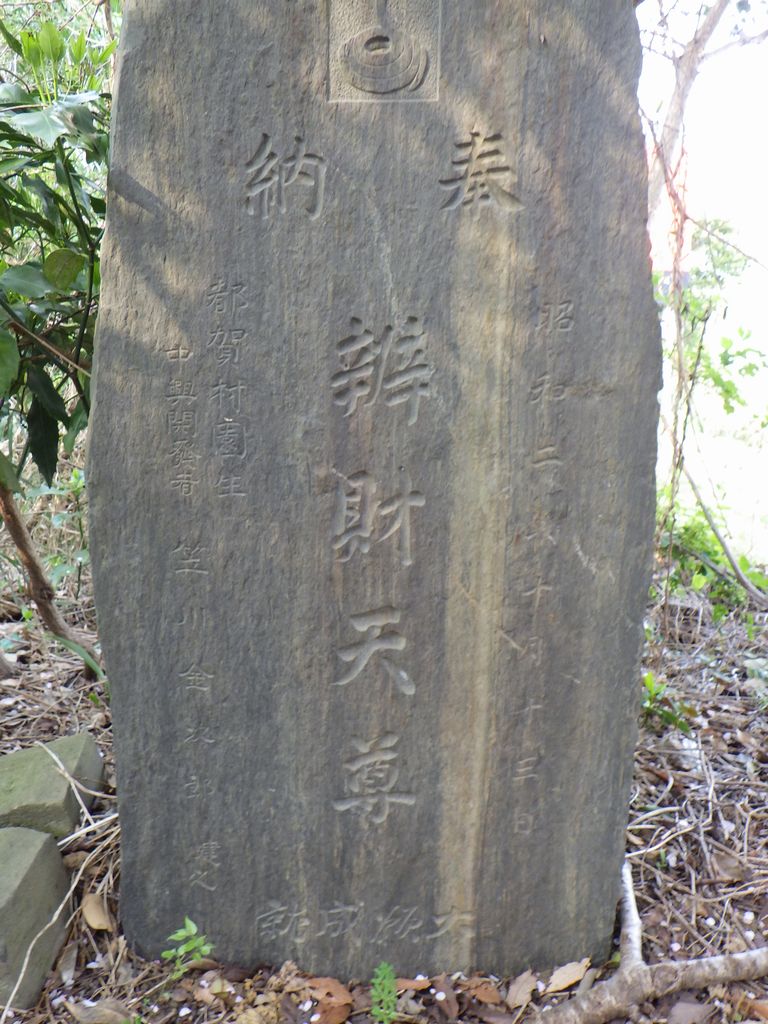 奉納
昭和二年十月十三日
辨財天尊
都賀村園生
中興開發者 笠川金次郎 建之
大願成就